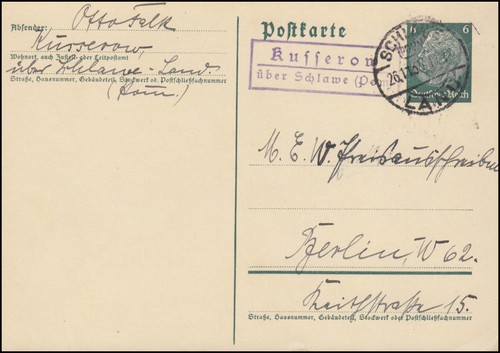 Absender: Otto Falk
Kusserow
Wohnort, auch Zustell- oder Leitpostamt
über Schlawe-Land.
Straße, Hausnummer, Gebäudeteil, Stockwerk od. Postschließfachnummer
(Pom.)
Postkarte
6 6
Deutsches Reich
Kusserow
über Schlawe (Po
SCH
26.
LA
M. E. W. Preisausschreiben
Berlin, W 62.
Keithstraße 15.
Straße, Hausnummer, Gebäudeteil, Stockwerk oder Postschließfachnummer